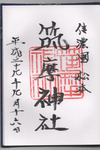 信濃國 松本
筑摩神社
平成二十九年 月十六日